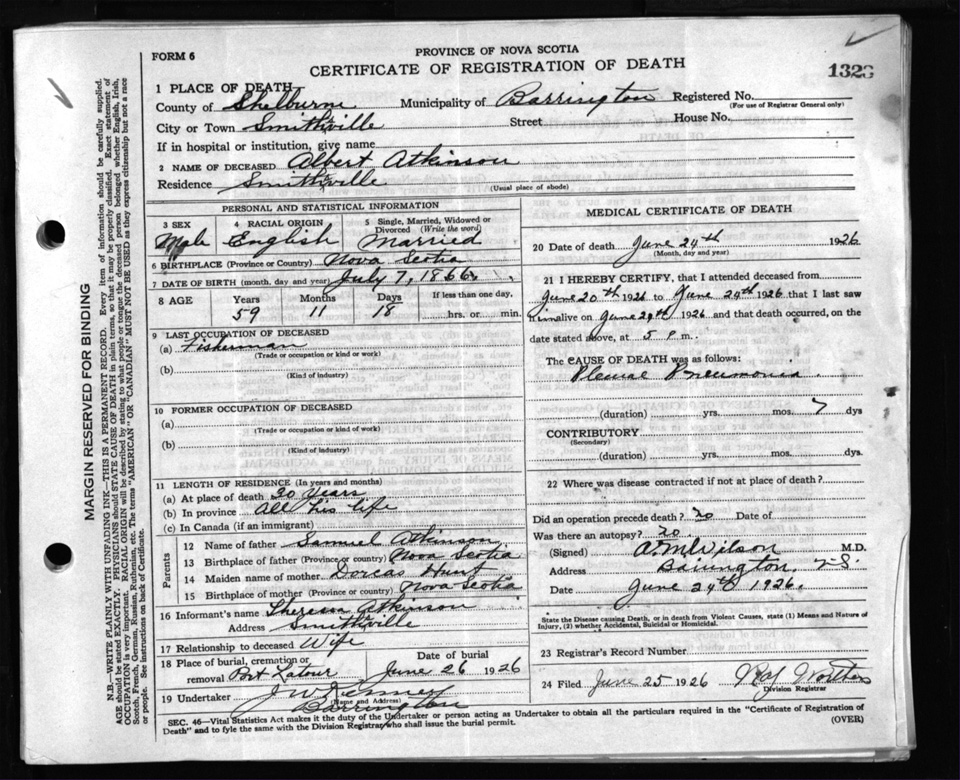 FORM 6
PROVINCE OF NOVA SCOTIA
CERTIFICATE OF REGISTRATION OF DEATH
1323
1 PLACE OF DEATH
County of Shelburne Municipality of Barrington Registered No.
(For use of Registrar General only)
City or Town Smithville Street House No.
If in hospital or institution, give name
2 NAME OF DECEASED Albert Atkinson
Residence Smithville
(Usual place of abode)
PERSONAL AND STATISTICAL INFORMATION
3 SEX 4 RACIAL ORIGIN 5 Single, Married, Widowed or Divorced (Write the word)
Male English Married
6 BIRTHPLACE (Province or Country) Nova Scotia
7 DATE OF BIRTH (month, day and year) July 7, 1866
8 AGE Years Months Days If less than one day,
59 11 18 hrs. or min.
9 LAST OCCUPATION OF DECEASED
(a) Fisherman
(Trade or occupation or kind or work)
(b)
(Kind of industry)
10 FORMER OCCUPATION OF DECEASED
(a)
(Trade or occupation or kind of work)
(b)
(Kind of industry)
11 LENGTH OF RESIDENCE (In years and months)
(a) At place of death 20 Years
(b) In province all his life
(c) In Canada (if an immigrant)
Parents
12 Name of father Samuel Atkinson
13 Birthplace of father (Province or country) Nova Scotia
14 Maiden name of mother Dorcas Hunt
15 Birthplace of mother (Province or country) Nova Scotia
16 Informant's name Theresa Atkinson
Address Smithville
17 Relationship to deceased Wife
18 Place of burial, cremation or removal Port Latour Date of burial June 26 1926
19 Undertaker J W
(Name and Address)
Barrington
MEDICAL CERTIFICATE OF DEATH
20 Date of death June 24th 1926
(Month, day and year)
21 I HEREBY CERTIFY, that I attended deceased from
June 20th 1926 to June 24th 1926, that I last saw
him alive on June 24th 1926 and that death occurred, on the
date stated above, at 5 P m.
The CAUSE OF DEATH was as follows:
Pneumonia
(duration) yrs. mos. 7 dys
CONTRIBUTORY
(Secondary)
(duration) yrs. mos. dys.
22 Where was disease contracted if not at place of death?
Did an operation precede death? no Date of
Was there an autopsy? no
(Signed) Wilson M.D.
Address Barrington, N.S.
Date June 24th 1926.
State the Disease causing Death, or in death from Violent Causes, state (1) Means and Nature of
Injury, (2) whether Accidental, Suicidal or Homicidal.
23 Registrar's Record Number
24 Filed June 25 1926
Division Registrar
SEC. 46—Vital Statistics Act makes it the duty of the Undertaker or person acting as Undertaker to obtain all the particulars required in the "Certificate of Registration of
Death" and to fyle the same with the Division Registrar who shall issue the burial permit. (OVER)
MARGIN RESERVED FOR BINDING
N.B.—WRITE PLAINLY WITH UNFADING INK—THIS IS A PERMANENT RECORD. Every item of information should be carefully supplied.
AGE should be stated EXACTLY. PHYSICIANS should STATE CAUSE OF DEATH in plain terms, so that it may be properly classified. Exact statement of
OCCUPATION is very important. RACIAL ORIGIN will be described by stating to what people or tongue the deceased person belonged whether English, Irish,
Scotch, French, German, Russian, Ruthenian, etc. The terms "AMERICAN" OR "CANADIAN" MUST NOT BE USED as they express citizenship but not a race
or people. See instructions on back of Certificate.